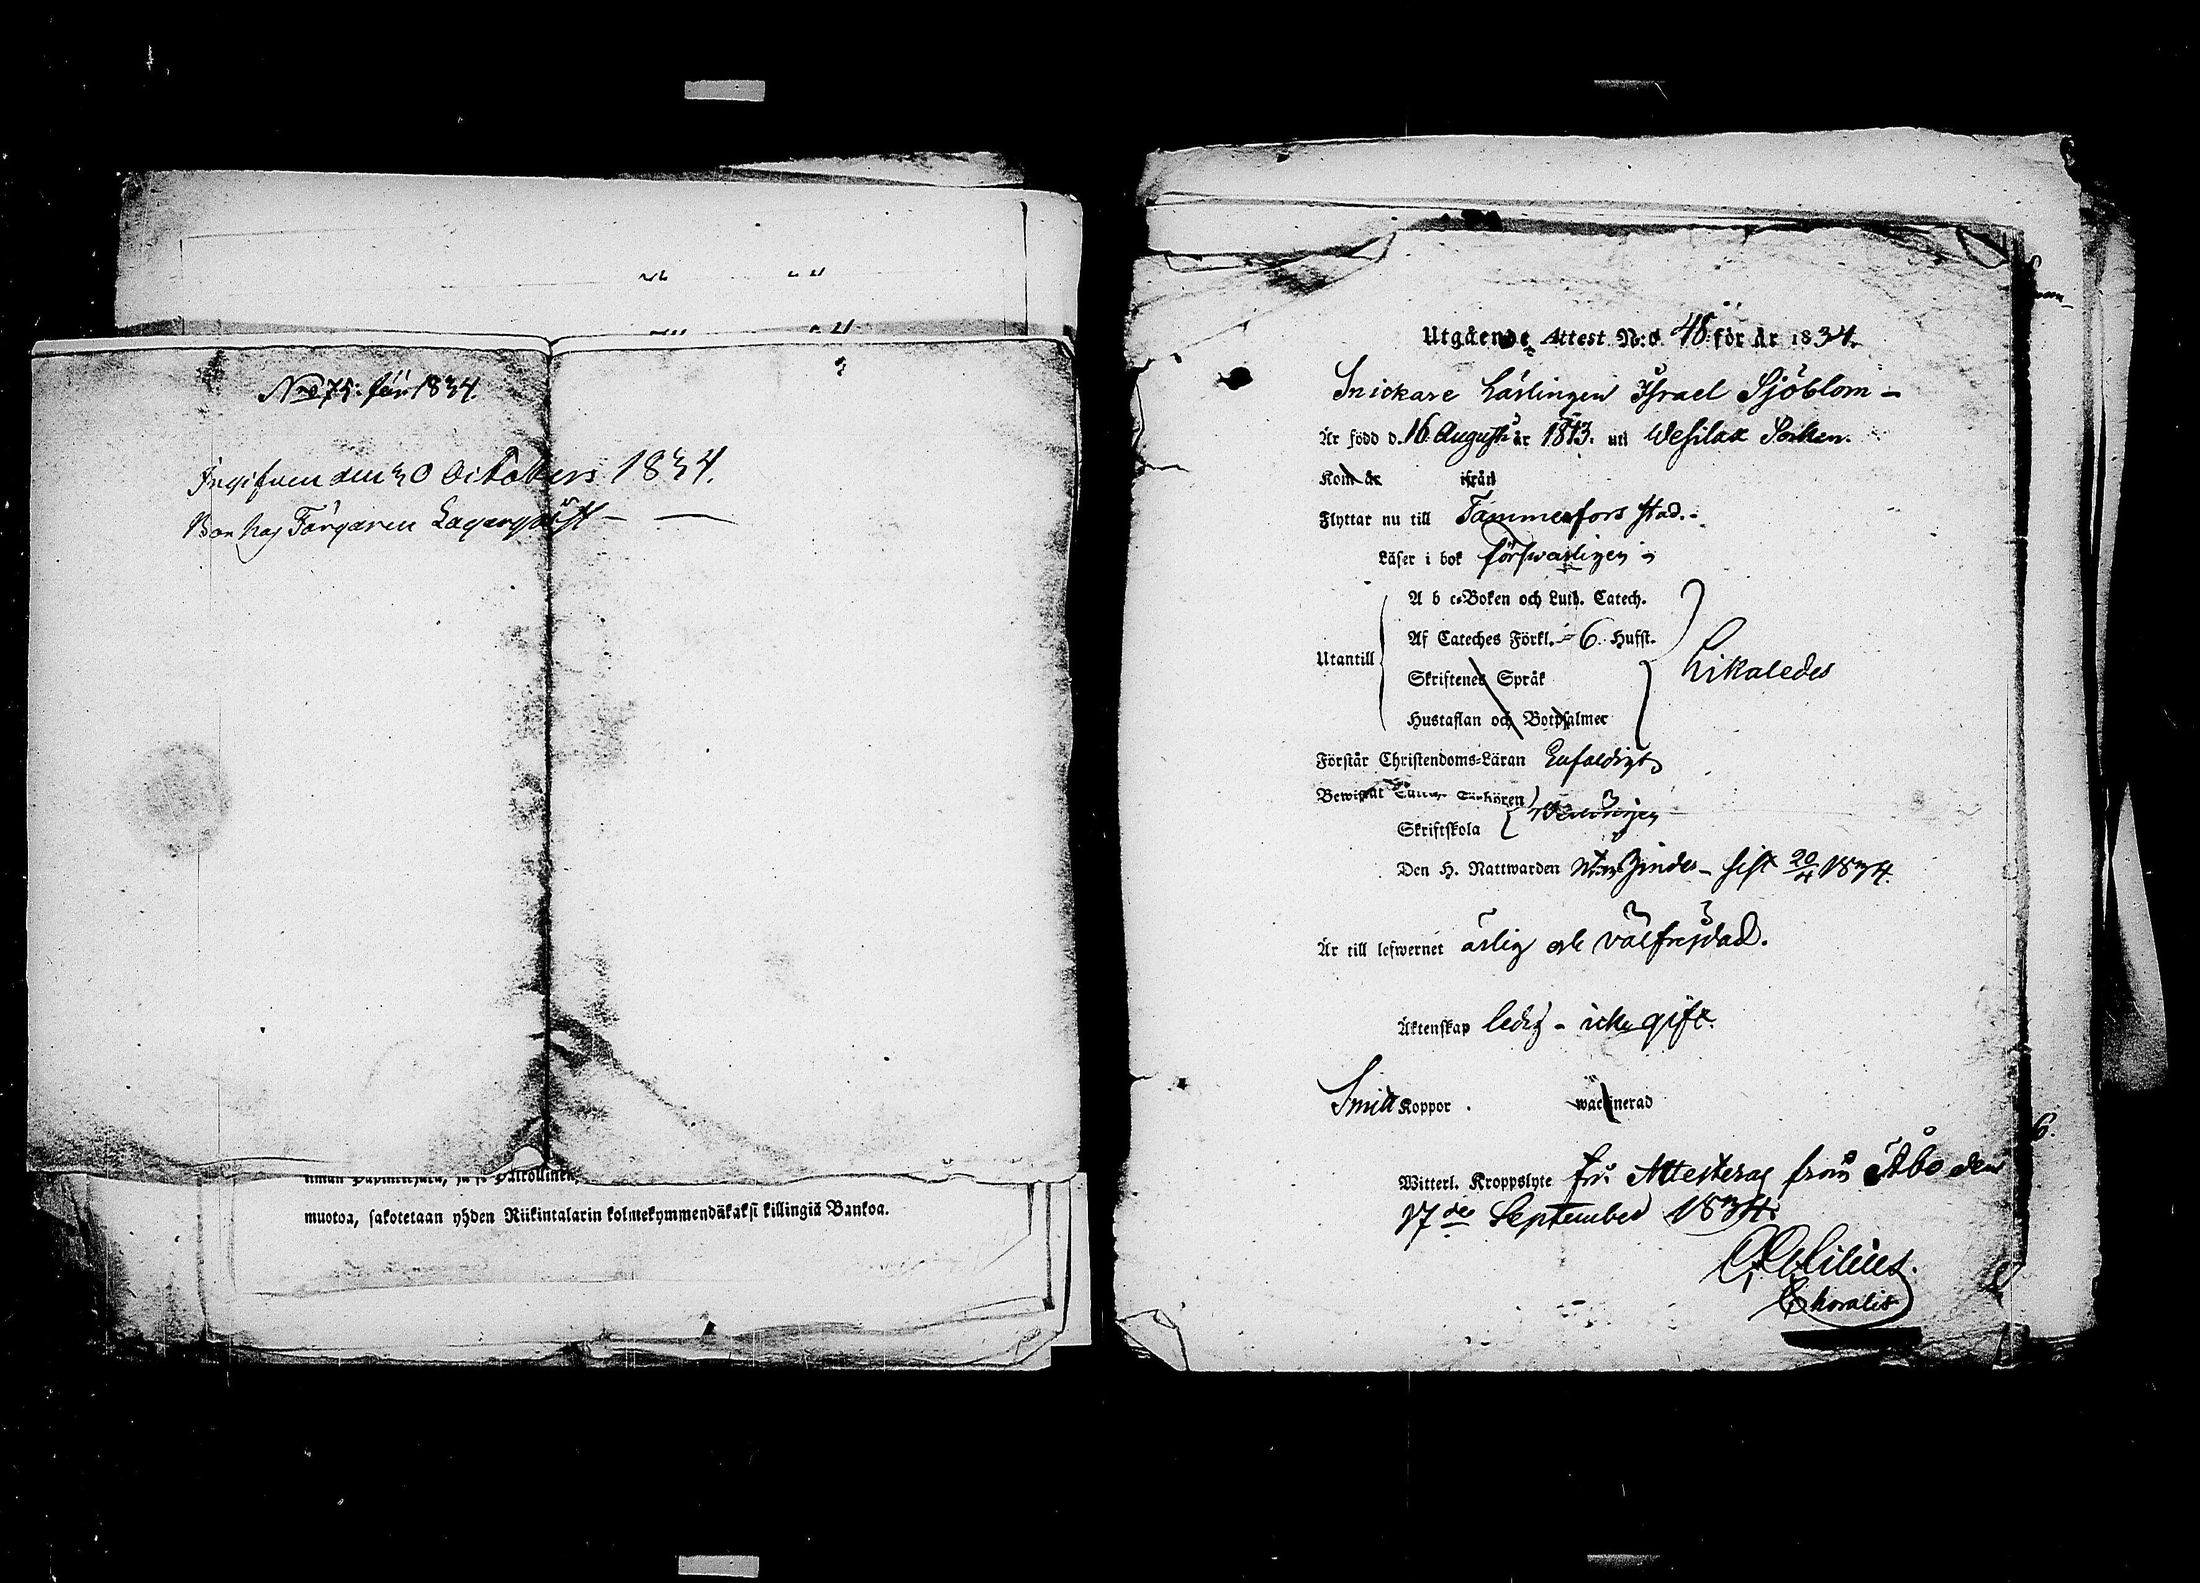 N:o 75. för 1834.
Ingifven den 30 Octobers 1834.
Bor hos Färgaren Lagerqvist
muotoa, sakotetaan yhden Riikintalarin kolmekymmendäkaksi killingiä Bankoa.
Utgående Attest N:o 48 för år 1834.
Snickare Lärlingen Israel Sjöblom –
Är född d. 16 Augusti år 1813. uti Wesilax Socken.
Kom år ifrån
Flyttar nu till Tammerfors stad.
Läser i bok försvarligen
A b c-Boken och Luth. Catech.
Af Cateches Förkl. 6. Hufst.
Utantill
Skriftenes Språk
Likaledes
Hustaflan och Botpsalmer
Förstår Christendoms-Läran Enfaldigt
Bewistat
Skriftskola
Den H. Nattwarden sist 20/4 1834.
Är till lefwernet ärlig och välfrejdad.
Äktenskap ledig – icke gift.
Smitt Koppor . waccinerad
Witterl. Kroppslyte fri. Attesteras från Åbo den
17de September 1834.